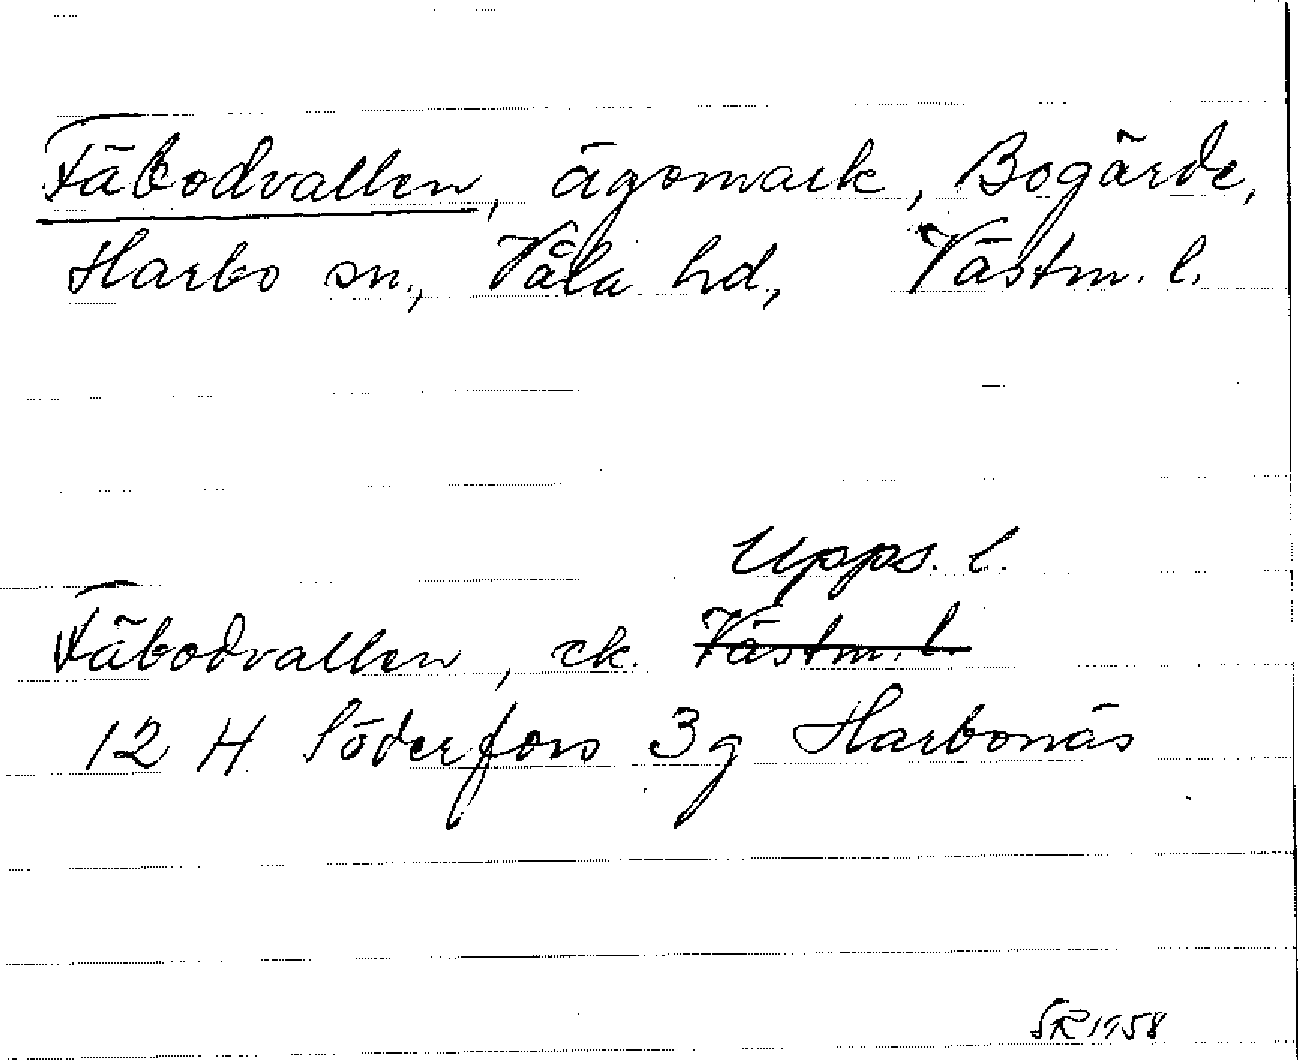 Fäbodvallen, ägomark, Bogärde,
Harbo sn., Våla hd, Västm. l.
Upps. l.
Fäbodvallen, ek. Västm. l.
12 H Söderfors 3g Harbonäs
SR 1958